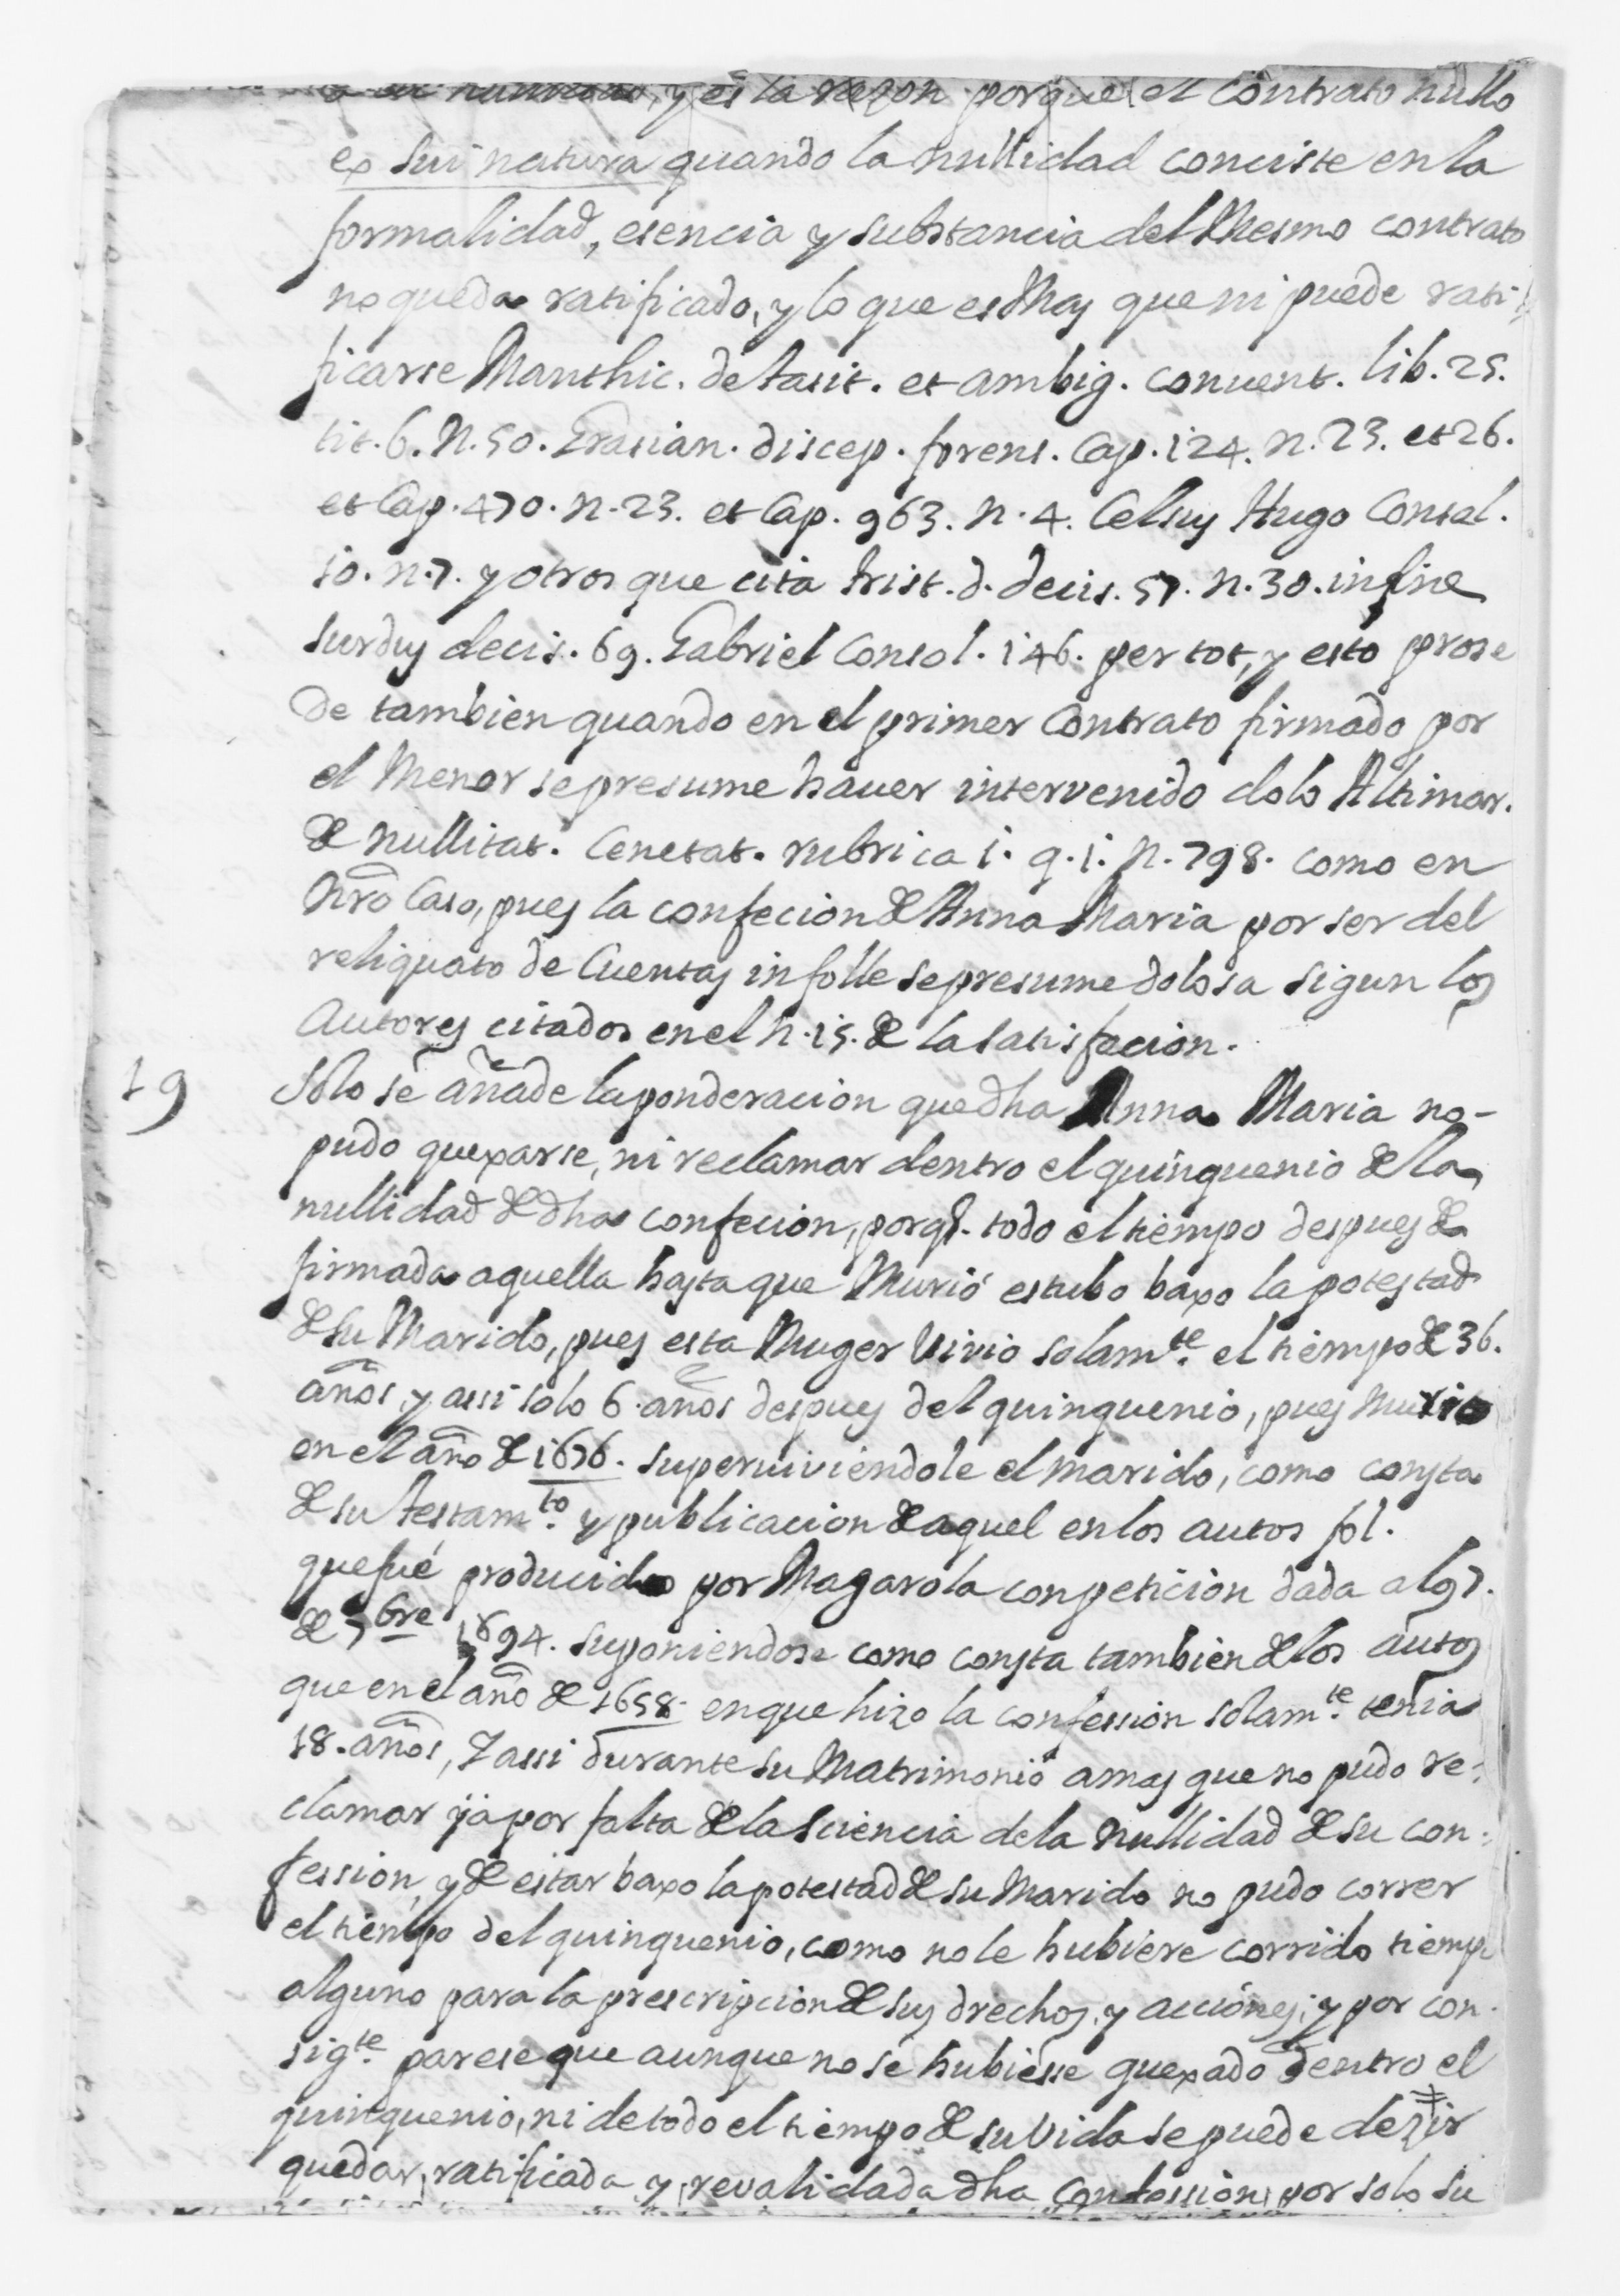 y es la razon porque el contrato nullo
ex sui natura quando la nullidad conciste en la
formalidad, esencia y substancia del Mesmo contrato
no queda ratificado, y lo que es Mas que ni puede rati-
ficarse Manthic. de tacit. et ambig. convent. lib. 25.
tit. 6. N. 50. Grasian. discep. forens. Cap. 124. n. 23. et 26.
et Cap. 470. n. 23. et Cap. 963. n. 4. Celsus Hugo Consel.
50. n. 7. y otros que cita trist. d. decis. 57. n. 30. in fine
surdus decis. 69. Gabriel Consol. 146. per tot, y esto prose
de tambien quando en el primer Contrato firmado por
el Menor se presume haver intervenido dolo Altimar.
de nullitat. Cenetat. rubrica 1. q. 1. N. 798. como en
Nro Caso, pues la confecion de Anna Maria por ser del
reliquato de Cuentas in folle se presume dolosa sigun los
Autores citados en el n. 15. de la satisfacion.
19 Solo se añade la ponderacion que dha Anna Maria no-
pudo quexarse, ni reclamar dentro el quinquenio de la
nullidad de dha confecion, porq̃. todo el tiempo despues de
firmada aquella hasta que Murió estubo baxo la potestad
de su Marido, pues esta Muger Vivio solamte. el tiempo de 36.
años, y assi solo 6. años despues del quinquenio, pues Murio
en el año de 1676. superviviendole el marido, como consta
de su testamto. y publicacion de aquel en los autos fol.
que fué producido por Magarola con peticion dada al 97.
de 7bre 1694. suponiendose como consta tambien de los autos
que en el año de 1658. en que hizo la confession solamte. tenia
18. años, Y assi durante su Matrimonio a mas que no pudo re-
clamar ya por falta de la Sciencia de la Nullidad de su con-
fession, y de estar baxo la potestad de su Marido no pudo correr
el tiempo del quinquenio, como no le hubiere corrido tiempo
alguno para la prescripcion de sus drechos, y acciones; y por con-
sigte. parese que aunque no se hubiesse quexado dentro el
quinquenio, ni de todo el tiempo de su Vida se puede dezir
quedar, ratificada y revalidada dha confession por solo su